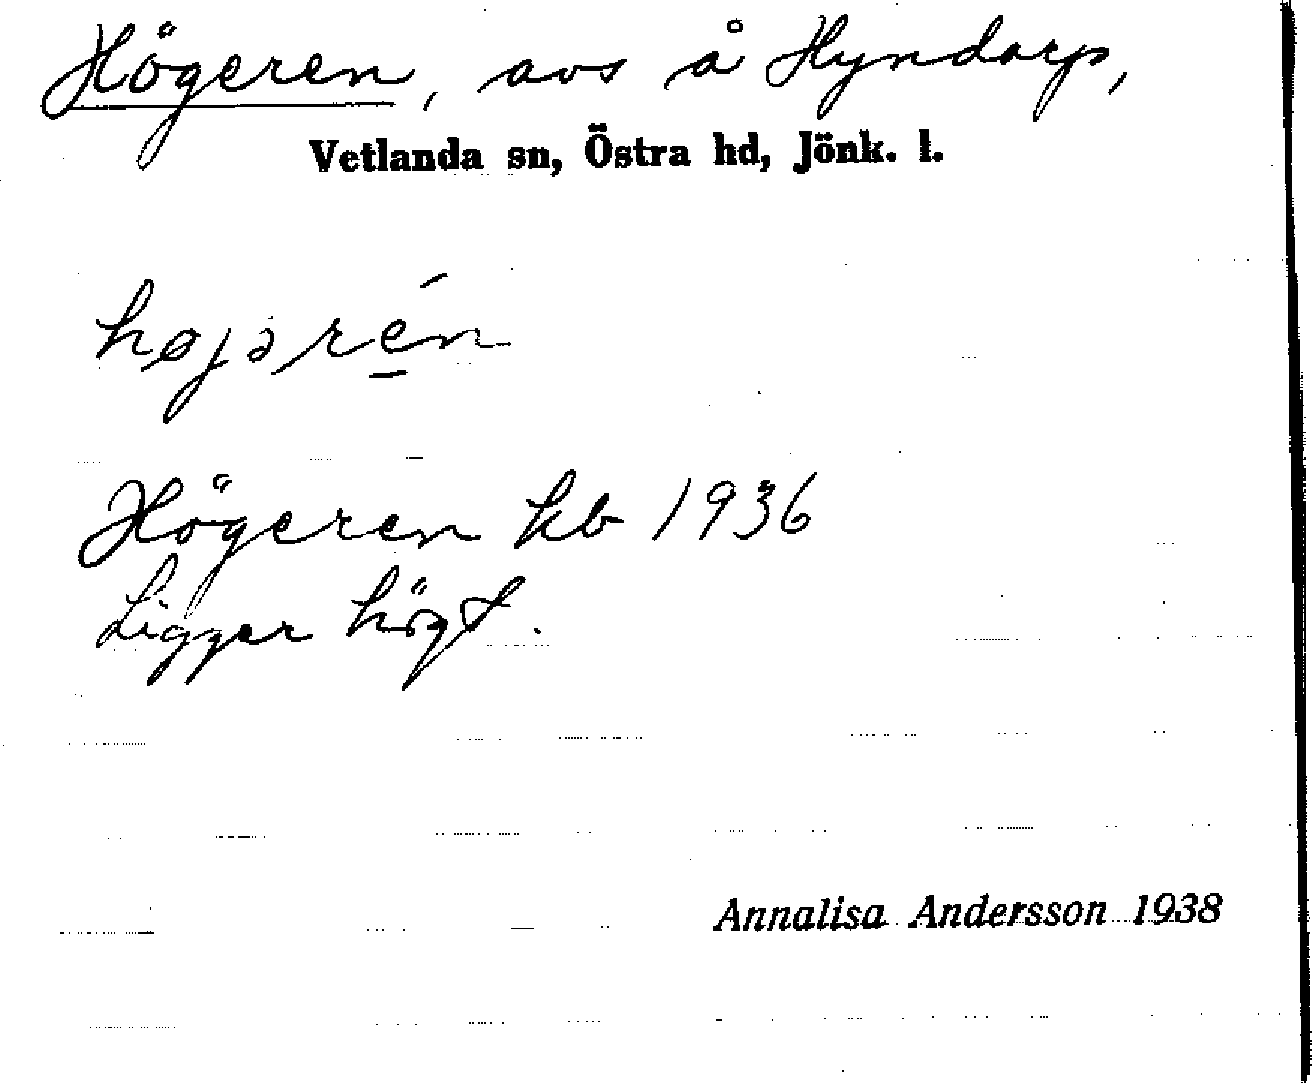 Högeren, avs å Hyndarp,
Vetlanda sn, Östra hd, Jönk. l.
högeren kb 1936
Ligger högt.
Annalisa Andersson 1938